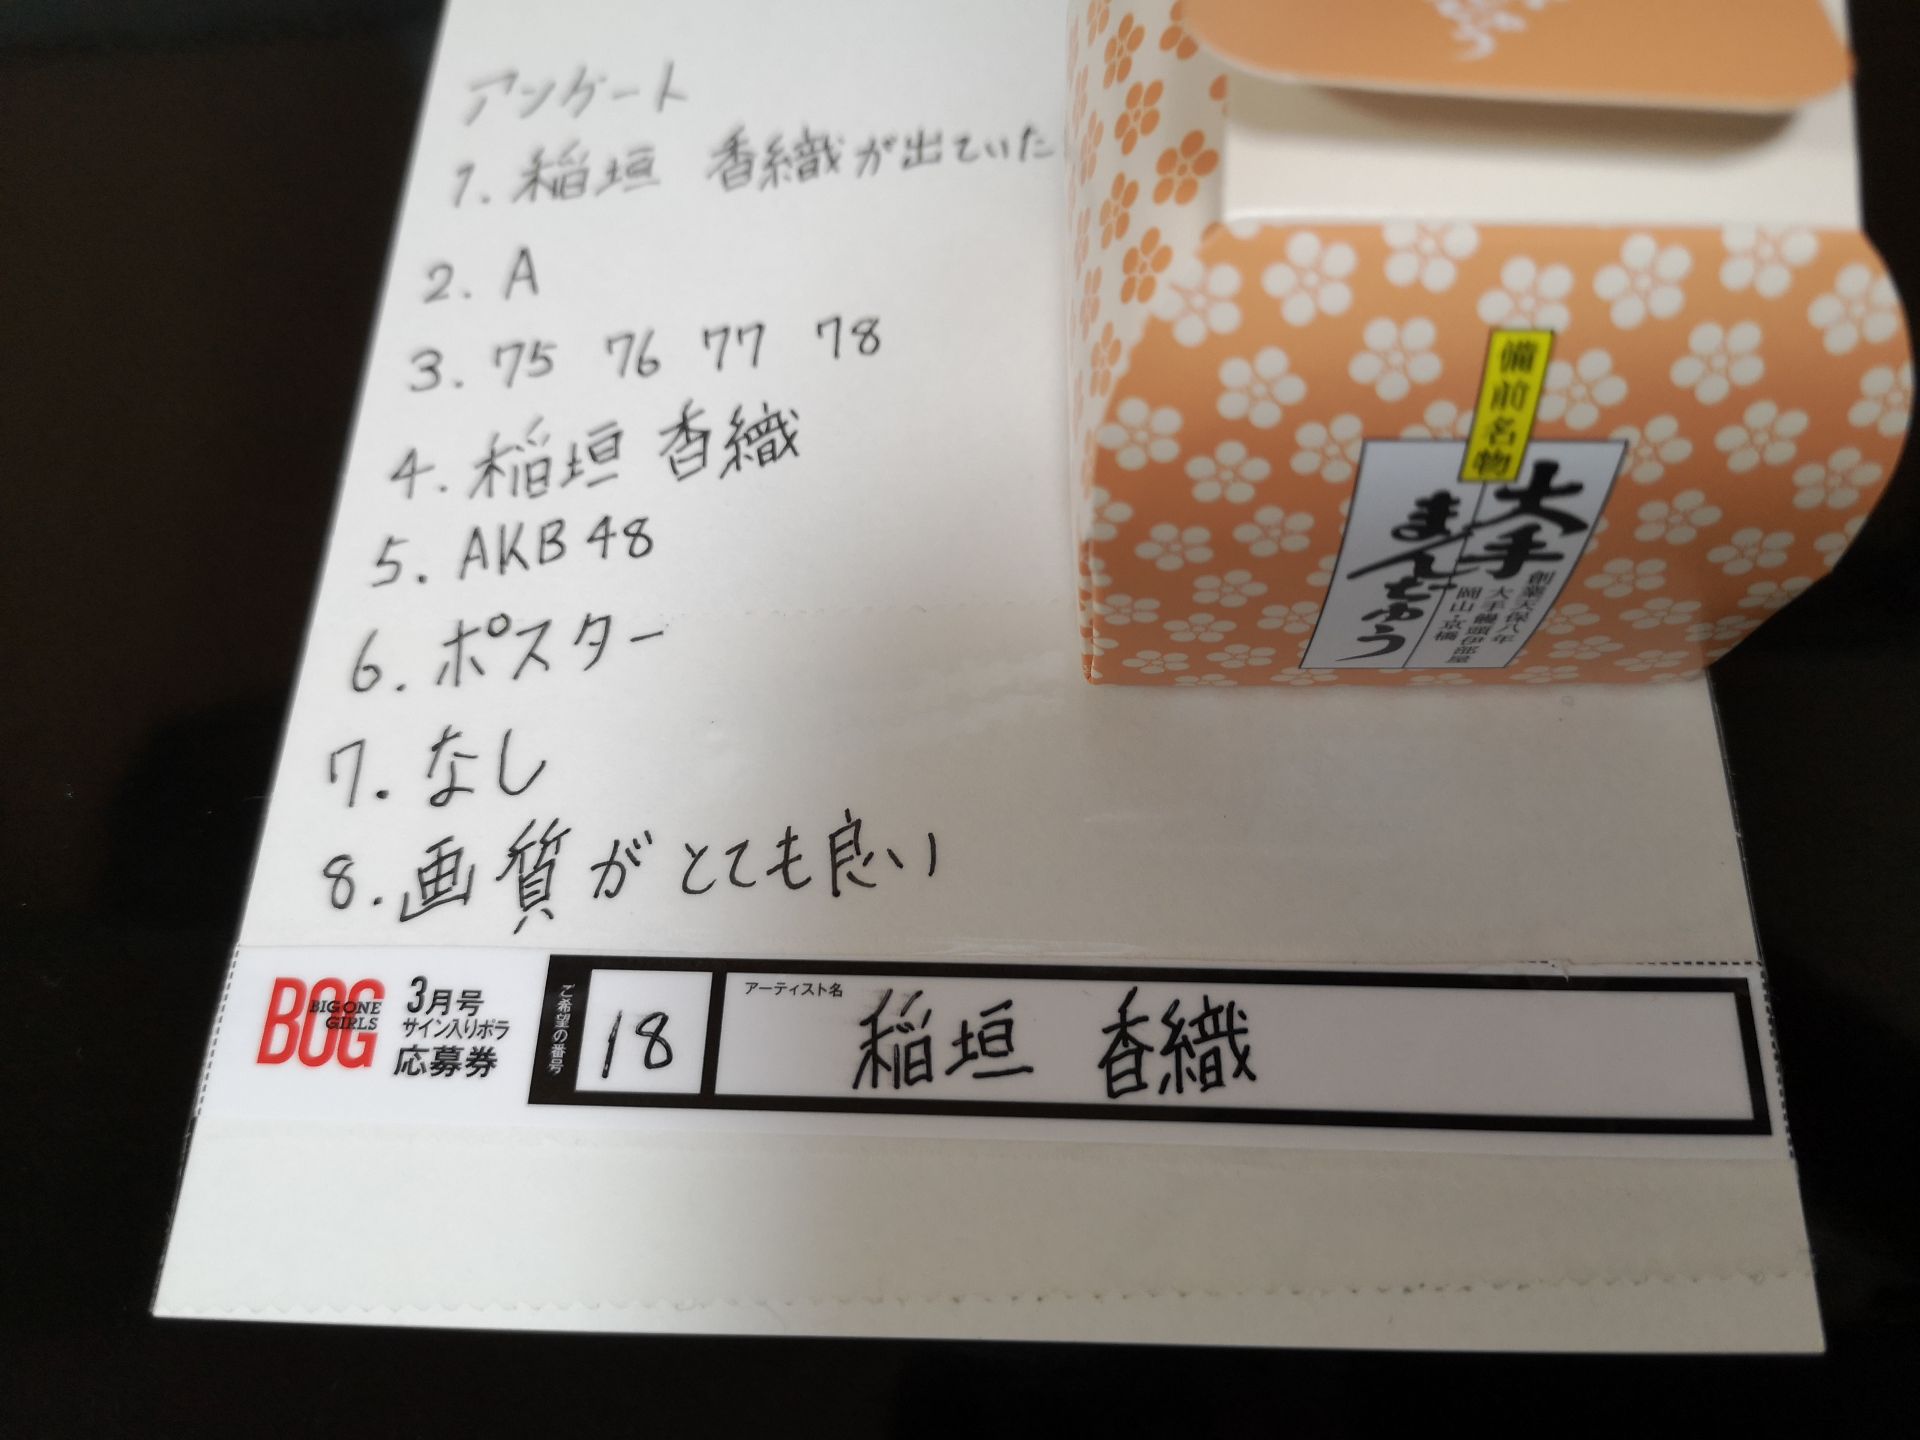 アンケート
1. 稲垣 香織が出ていた
2. A
3. 75 76 77 78
4. 稲垣 香織
5. AKB48
6. ポスター
7. なし
8. 画質がとても良い
備前名物
大手
まんぢゅう
創業天保八年
大手饅頭伊部屋
岡山・京橋
BOG
BIG ONE
GIRLS
3月号
サイン入りポラ
応募券
ご希望の番号
18
アーティスト名
稲垣 香織